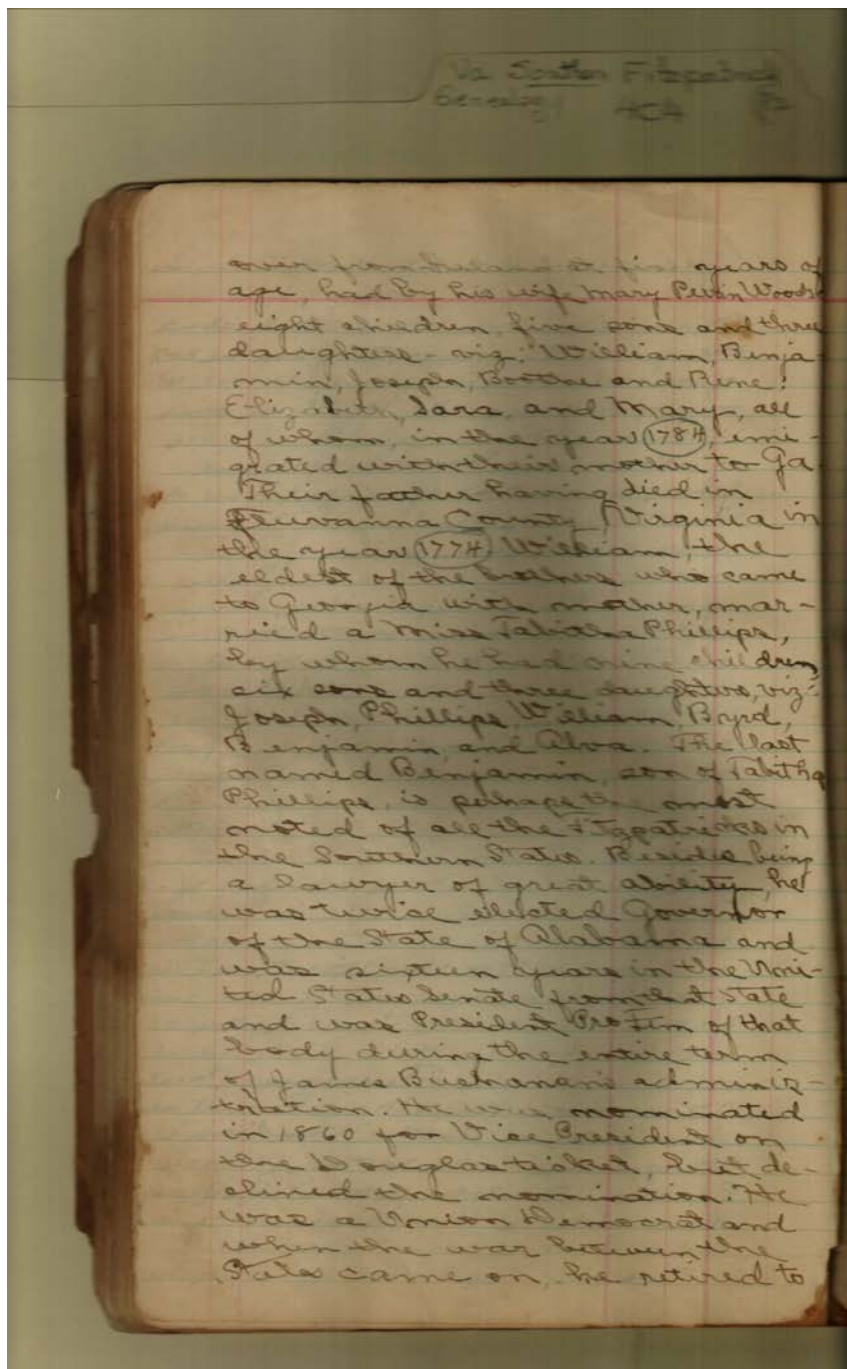 Va Southern Fitzpatrick
Genealogy 4C4
over from Ireland at years of
age, had by his wife Mary Perin Woods
eight children, five sons and three
daughters - viz: William, Benja-
min, Joseph, Boothe and Rene:
Elizabeth, Sara, and Mary, all
of whom, in the year 1784, emi-
grated with their mother to Ga.
Their father having died in
Fluvanna County, Virginia in
the year 1774. William, the
eldest of the brothers who came
to Georgia with mother, mar-
ried a Miss Tabitha Phillips,
by whom he had nine children,
six sons and three daughters, viz:
Joseph, Phillips, William, Byrd,
Benjamin, and Alva. The last
named Benjamin, son of Tabitha
Phillips, is perhaps the most
noted of all the Fitzpatricks in
the Southern States. Beside being
a lawyer of great ability, he
was twice elected Governor
of the State of Alabama and
was sixteen years in the Uni-
ted States Senate from that State
and was President Pro Tem of that
body during the entire term
of James Buchanan's adminis-
tration. He was nominated
in 1860 for Vice President on
the Douglas ticket, but de-
clined the nomination. He
was a Union Democrat and
when the war between the
States came on, he retired to